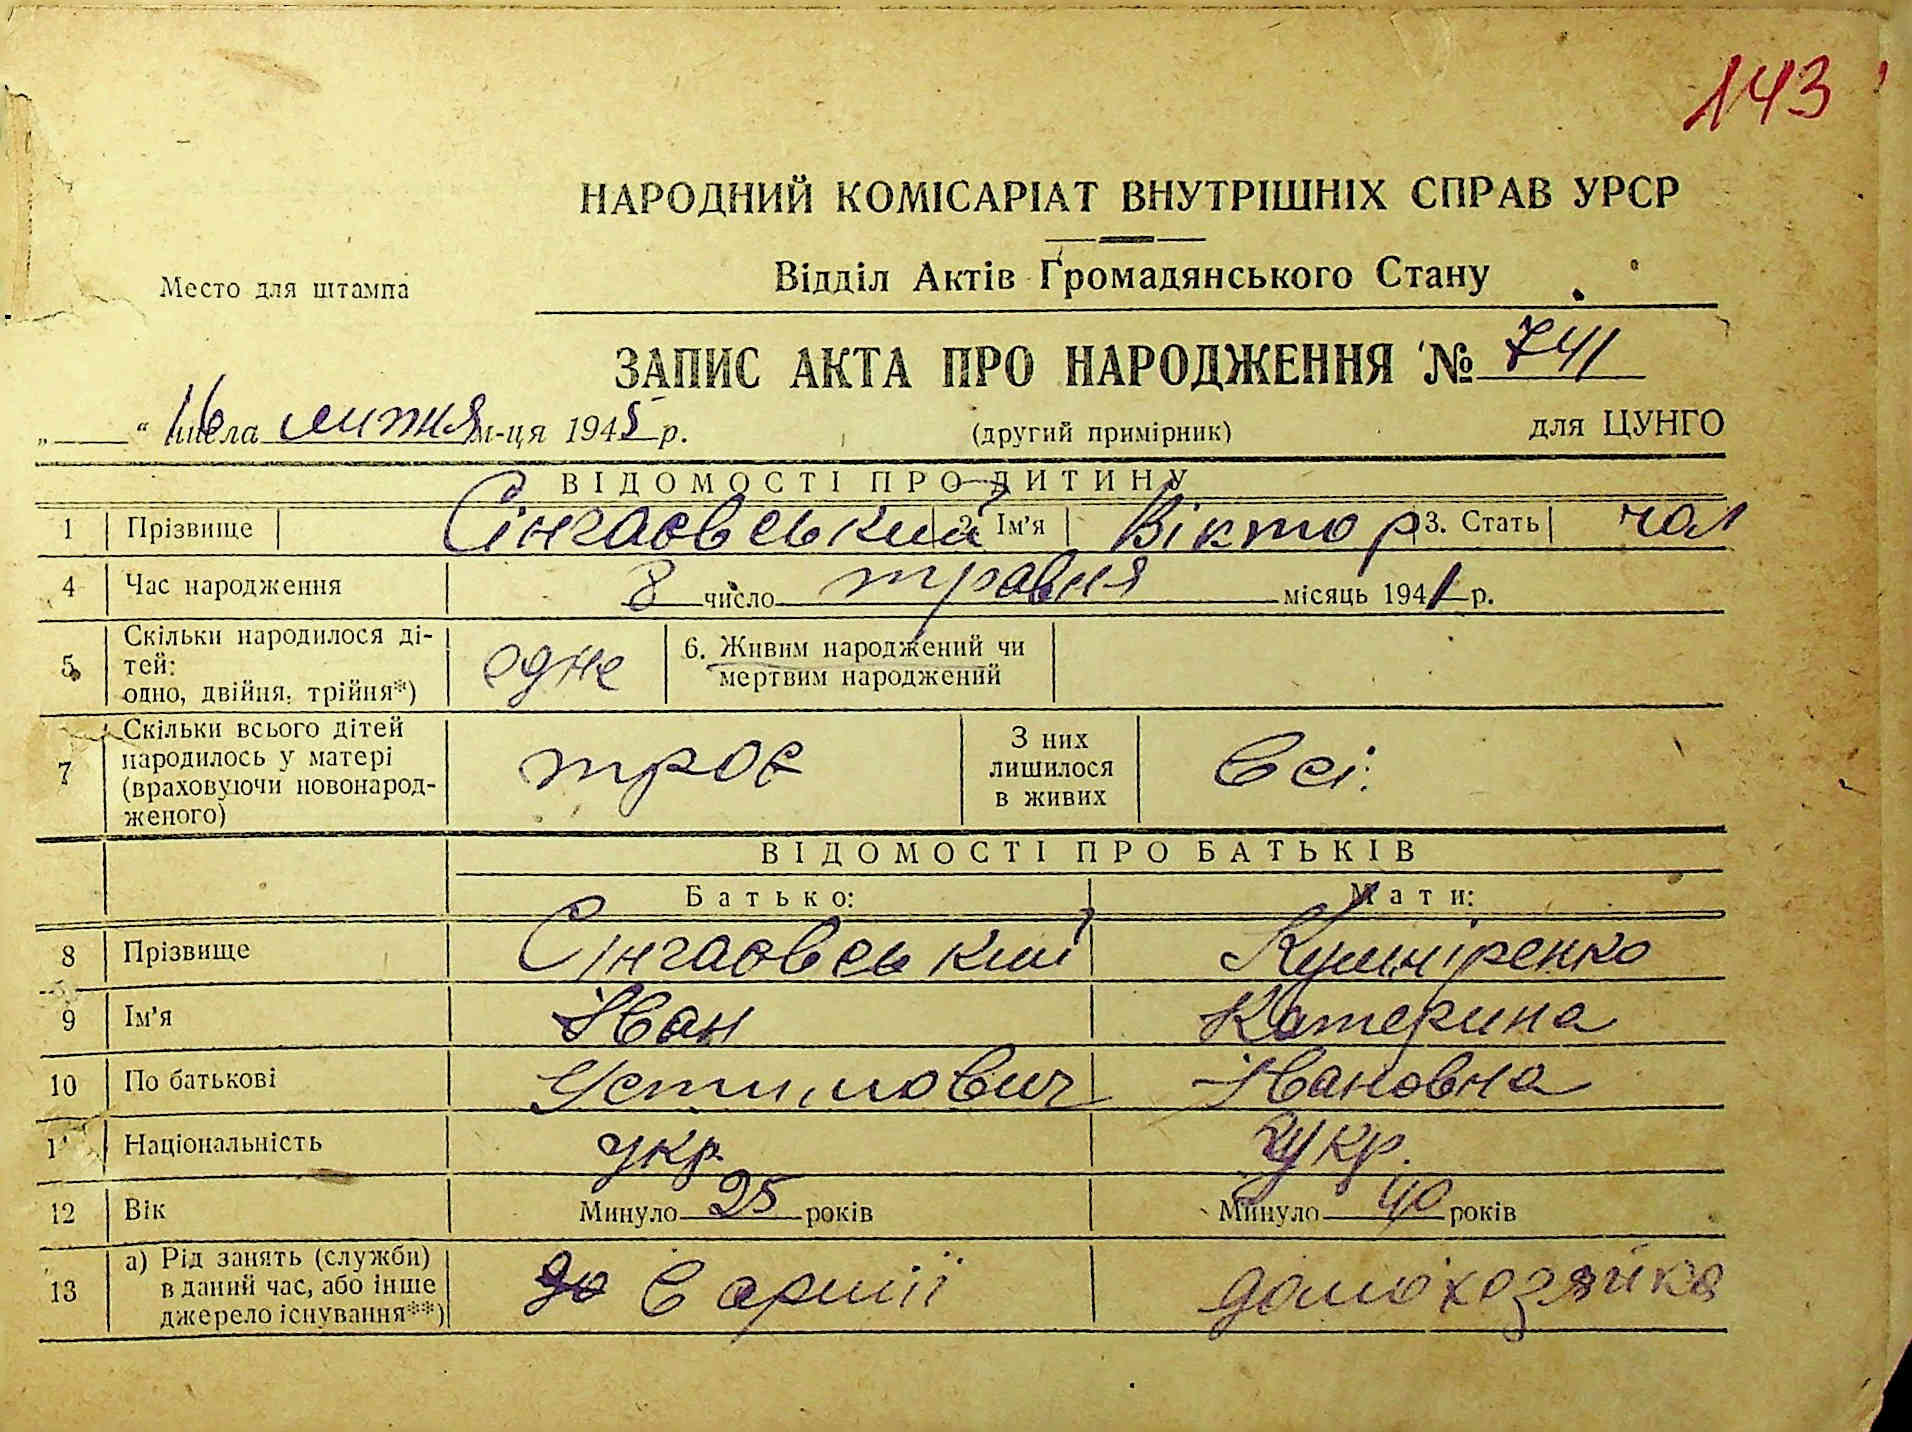 143
НАРОДНИЙ КОМІСАРІАТ ВНУТРІШНІХ СПРАВ УРСР
Место для штампа
Відділ Актів Громадянського Стану
ЗАПИС АКТА ПРО НАРОДЖЕННЯ № 741
„ “ 16 числа липня м-ця 1945 р. (другий примірник) для ЦУНГО
ВІДОМОСТІ ПРО ДИТИНУ
1 Прізвище Сінгаєвський 2. Ім’я Віктор 3. Стать чол
4 Час народження 8 число травня місяць 1941 р.
5 Скільки народилося ді-
тей:
одно, двійня, трійня*) одне 6. Живим народжений чи
мертвим народжений
7 Скільки всього дітей
народилось у матері
(враховуючи новонарод-
женого) троє З них
лишилося
в живих всі.
ВІДОМОСТІ ПРО БАТЬКІВ
Батько: Мати:
8 Прізвище Сінгаєвський Кушніренко
9 Ім’я Іван Катерина
10 По батькові Устимович Івановна
11 Національність укр укр.
12 Вік Минуло 25 років Минуло 40 років
13 а) Рід занять (служби)
в даний час, або інше
джерело існування**) в армії домохозяйка